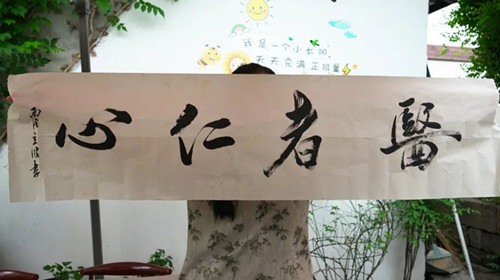 我是一个小太阳,
天天充满正能量
醫者仁心